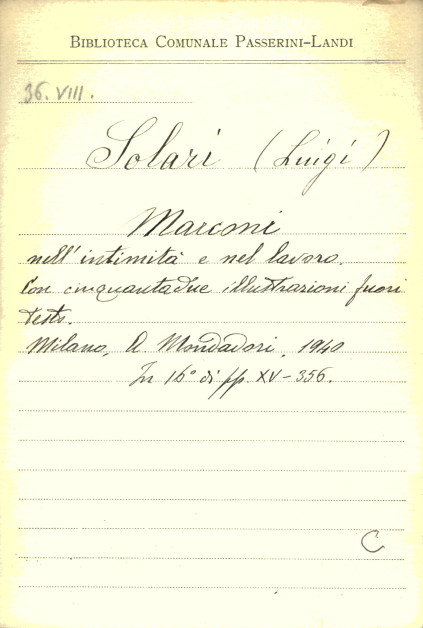 BIBLIOTECA COMUNALE PASSERINI-LANDI
36. VIII.
Solari (Luigi)
Marconi
nell'intimità e nel lavoro.
Con cinquantadue illustrazioni fuori
testo.
Milano, A. Mondadori, 1940
In 16° di pp. XV-356.
C